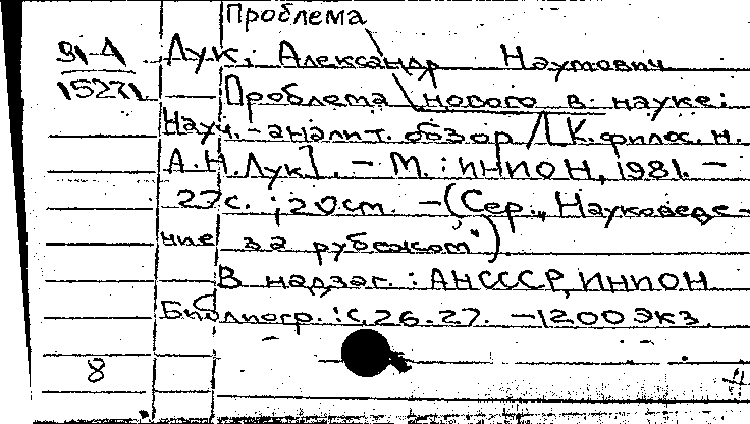 Проблема
Лук, Александр Наумович
15271
Проблема нового в науке:
Науч.-аналит. обзор / [К. филос. н.
А.Н. Лук]. – М. : ИНИОН, 1981. –
27 с. ; 20 см. – (Сер. „Науковеде-
ние за рубежом").
В надзаг. : АНСССР, ИНИОН
Библиогр. : с. 26-27. – 1200 экз.
8